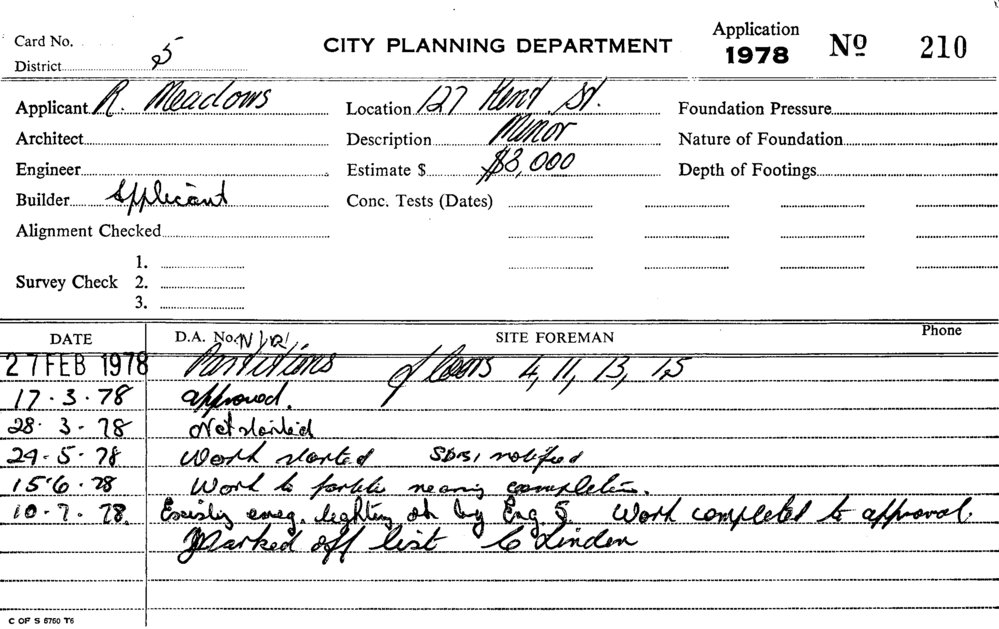 Card No.
District 5
CITY PLANNING DEPARTMENT
Application
1978 No 210
Applicant R. Meadows
Architect
Engineer
Builder Applicant
Alignment Checked
Survey Check 1.
2.
3.
Location 127 Kent St.
Description Minor
Estimate $ $3,000
Conc. Tests (Dates)
Foundation Pressure
Nature of Foundation
Depth of Footings
DATE D.A. No. SITE FOREMAN Phone
27 FEB 1978 Partitions floors 4, 11, 13, 15
17.3.78 approved.
28.3.78 Not started
24-5.78 Work started notified
15.6.78 Work to nearing completion.
10.7.78. emeg. lighting ok by Eng S. Work completed to approval.
Marked off list C Linden
C OF S 5750 T6